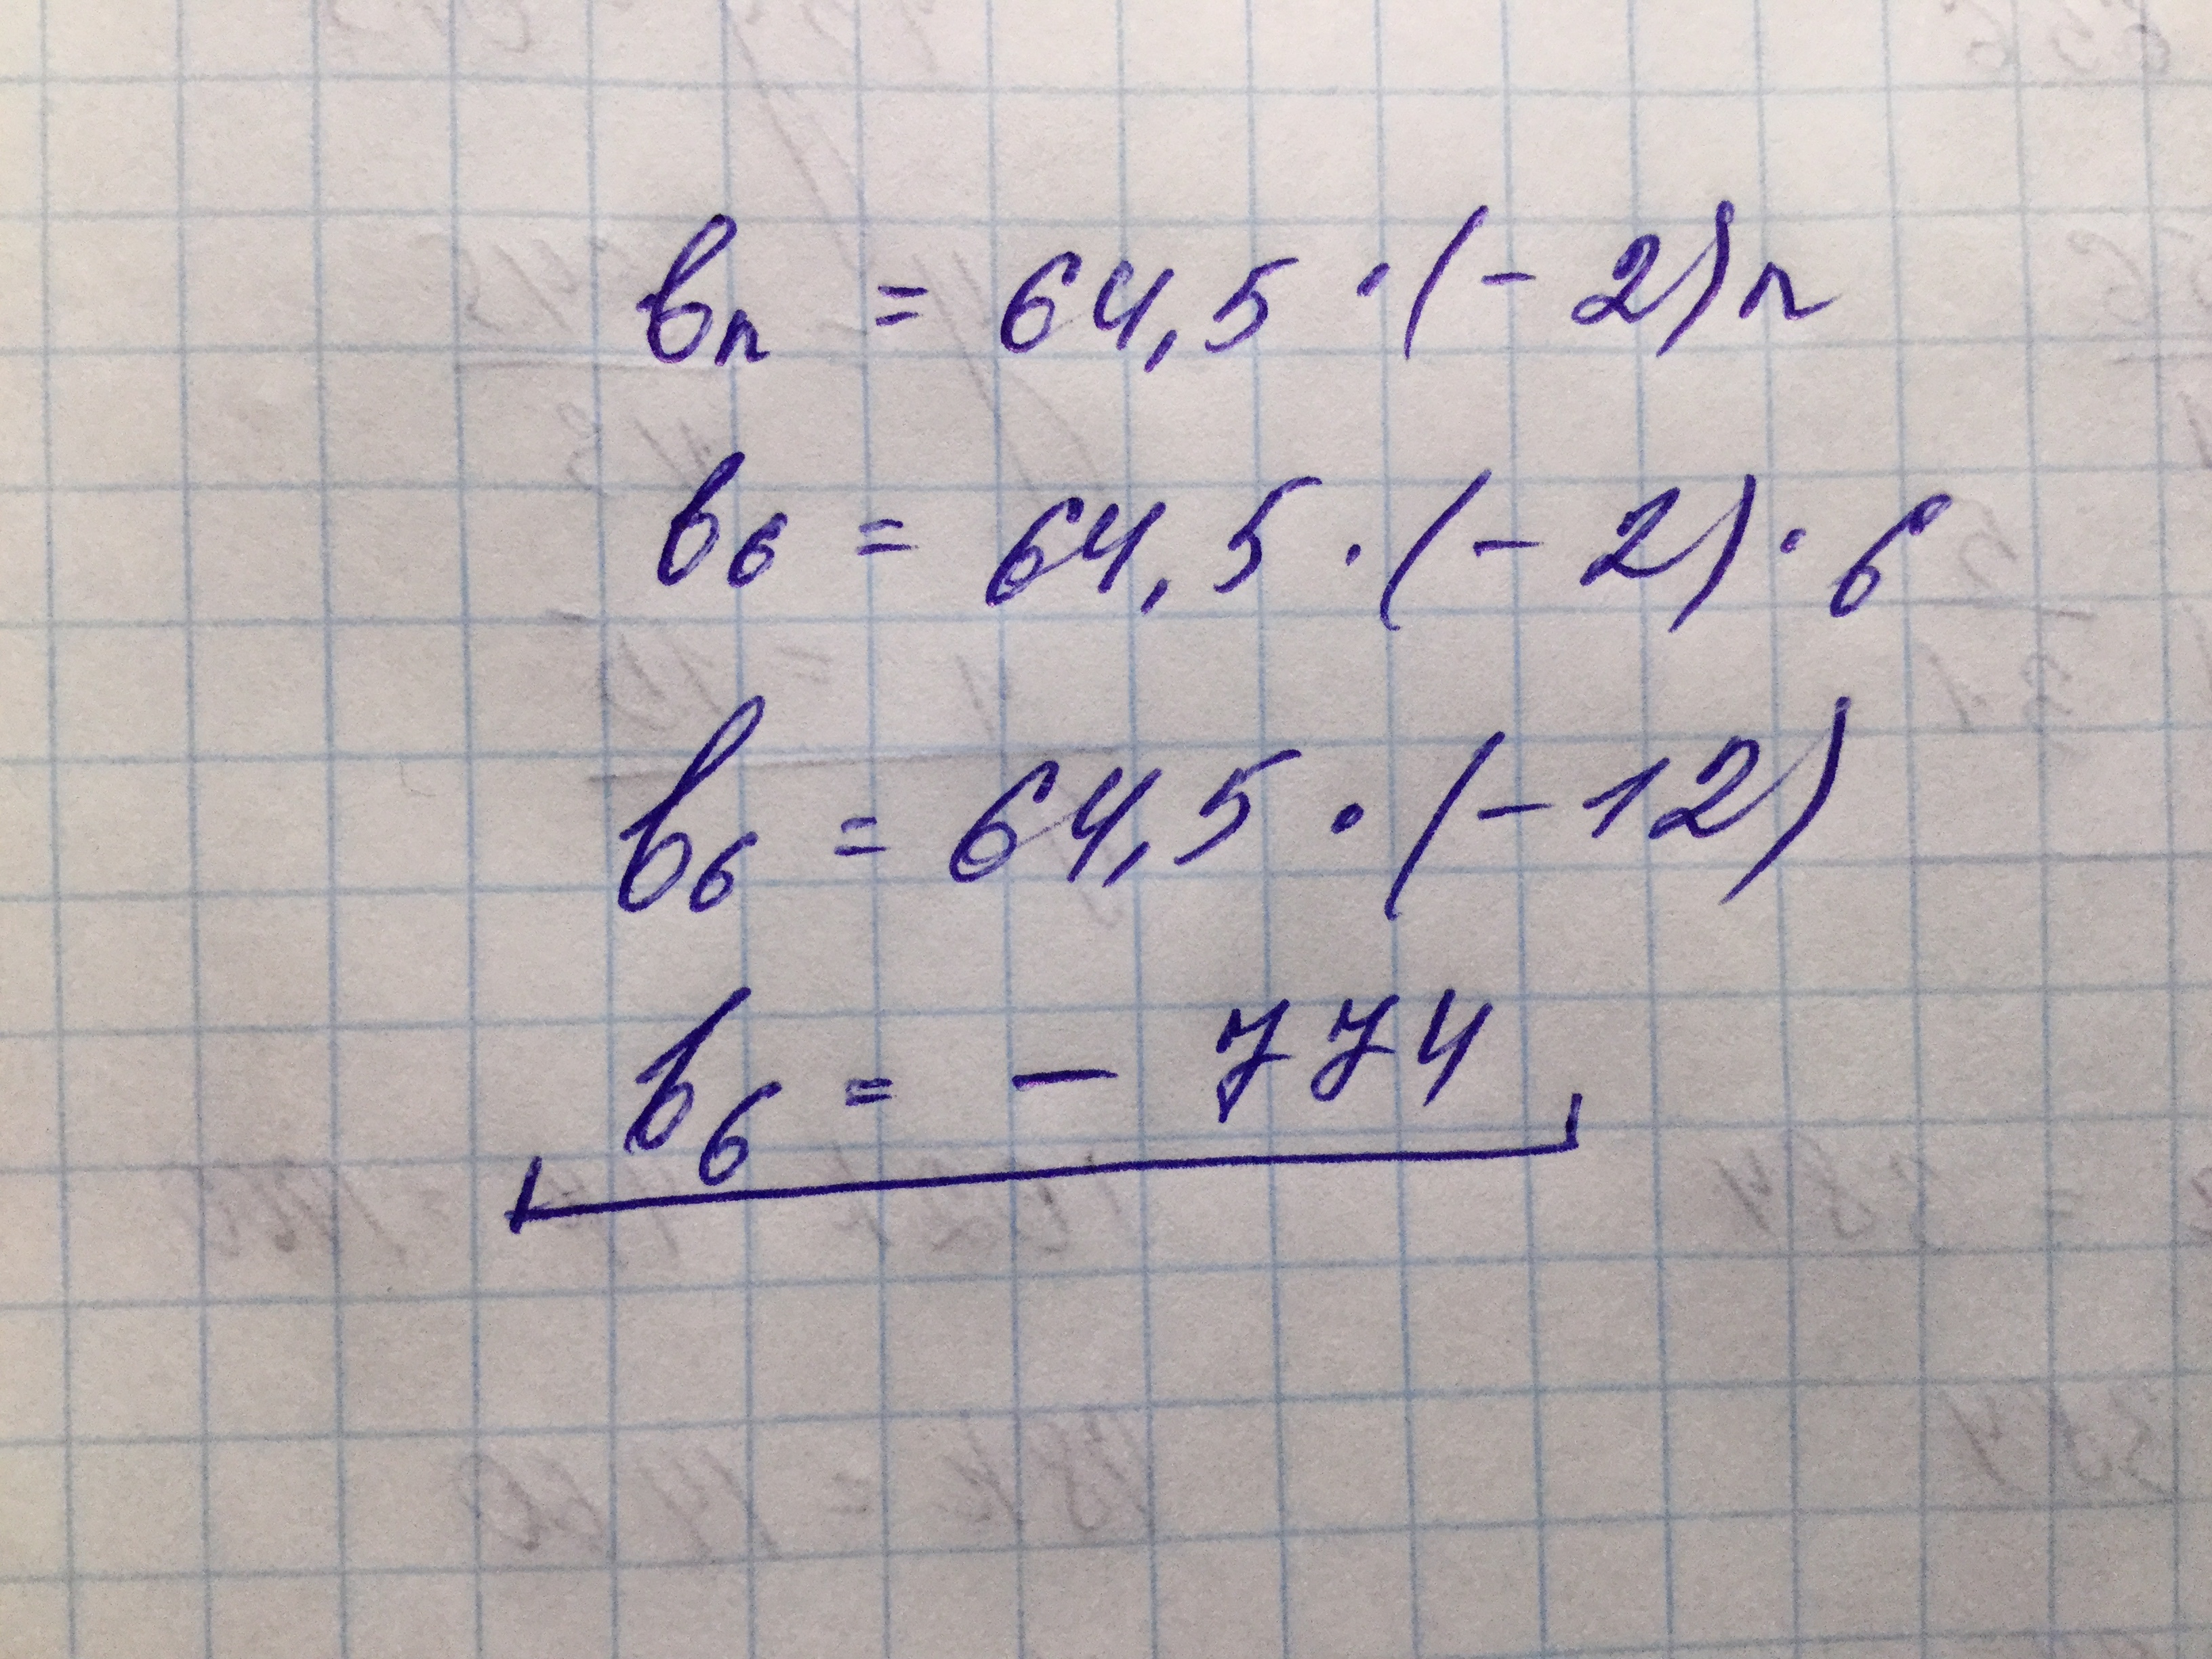 bn = 64,5 · (- 2) n
b6 = 64,5 · (- 2) · 6
b6 = 64,5 · (- 12)
b6 = - 774